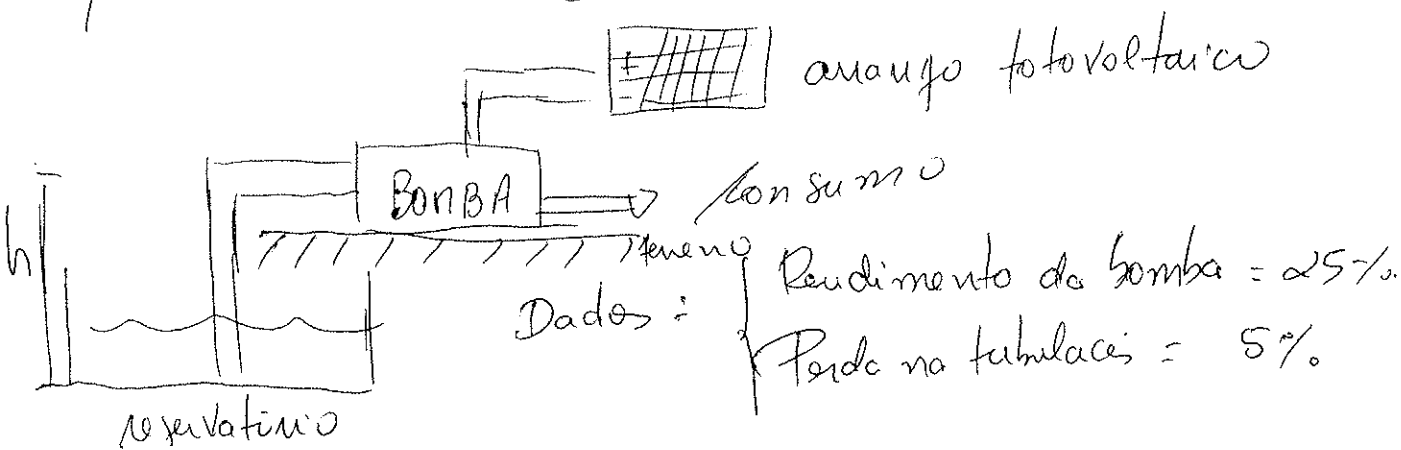 +
-
arranjo fotovoltaico
BOMBA
consumo
h
terreno
Dados:
Rendimento da bomba = 25%.
Perda na tubulação = 5%.
reservatório